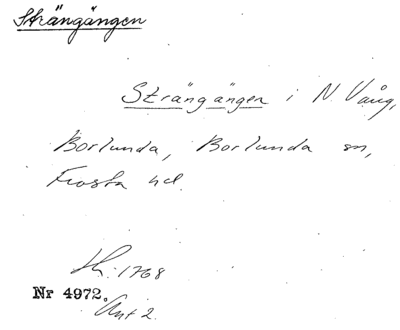 Strängängen
Strängängen i N Vång,
Borlunda, Borlunda sn,
Frosta hd.
1768
Nr 4972.
Akt 2.